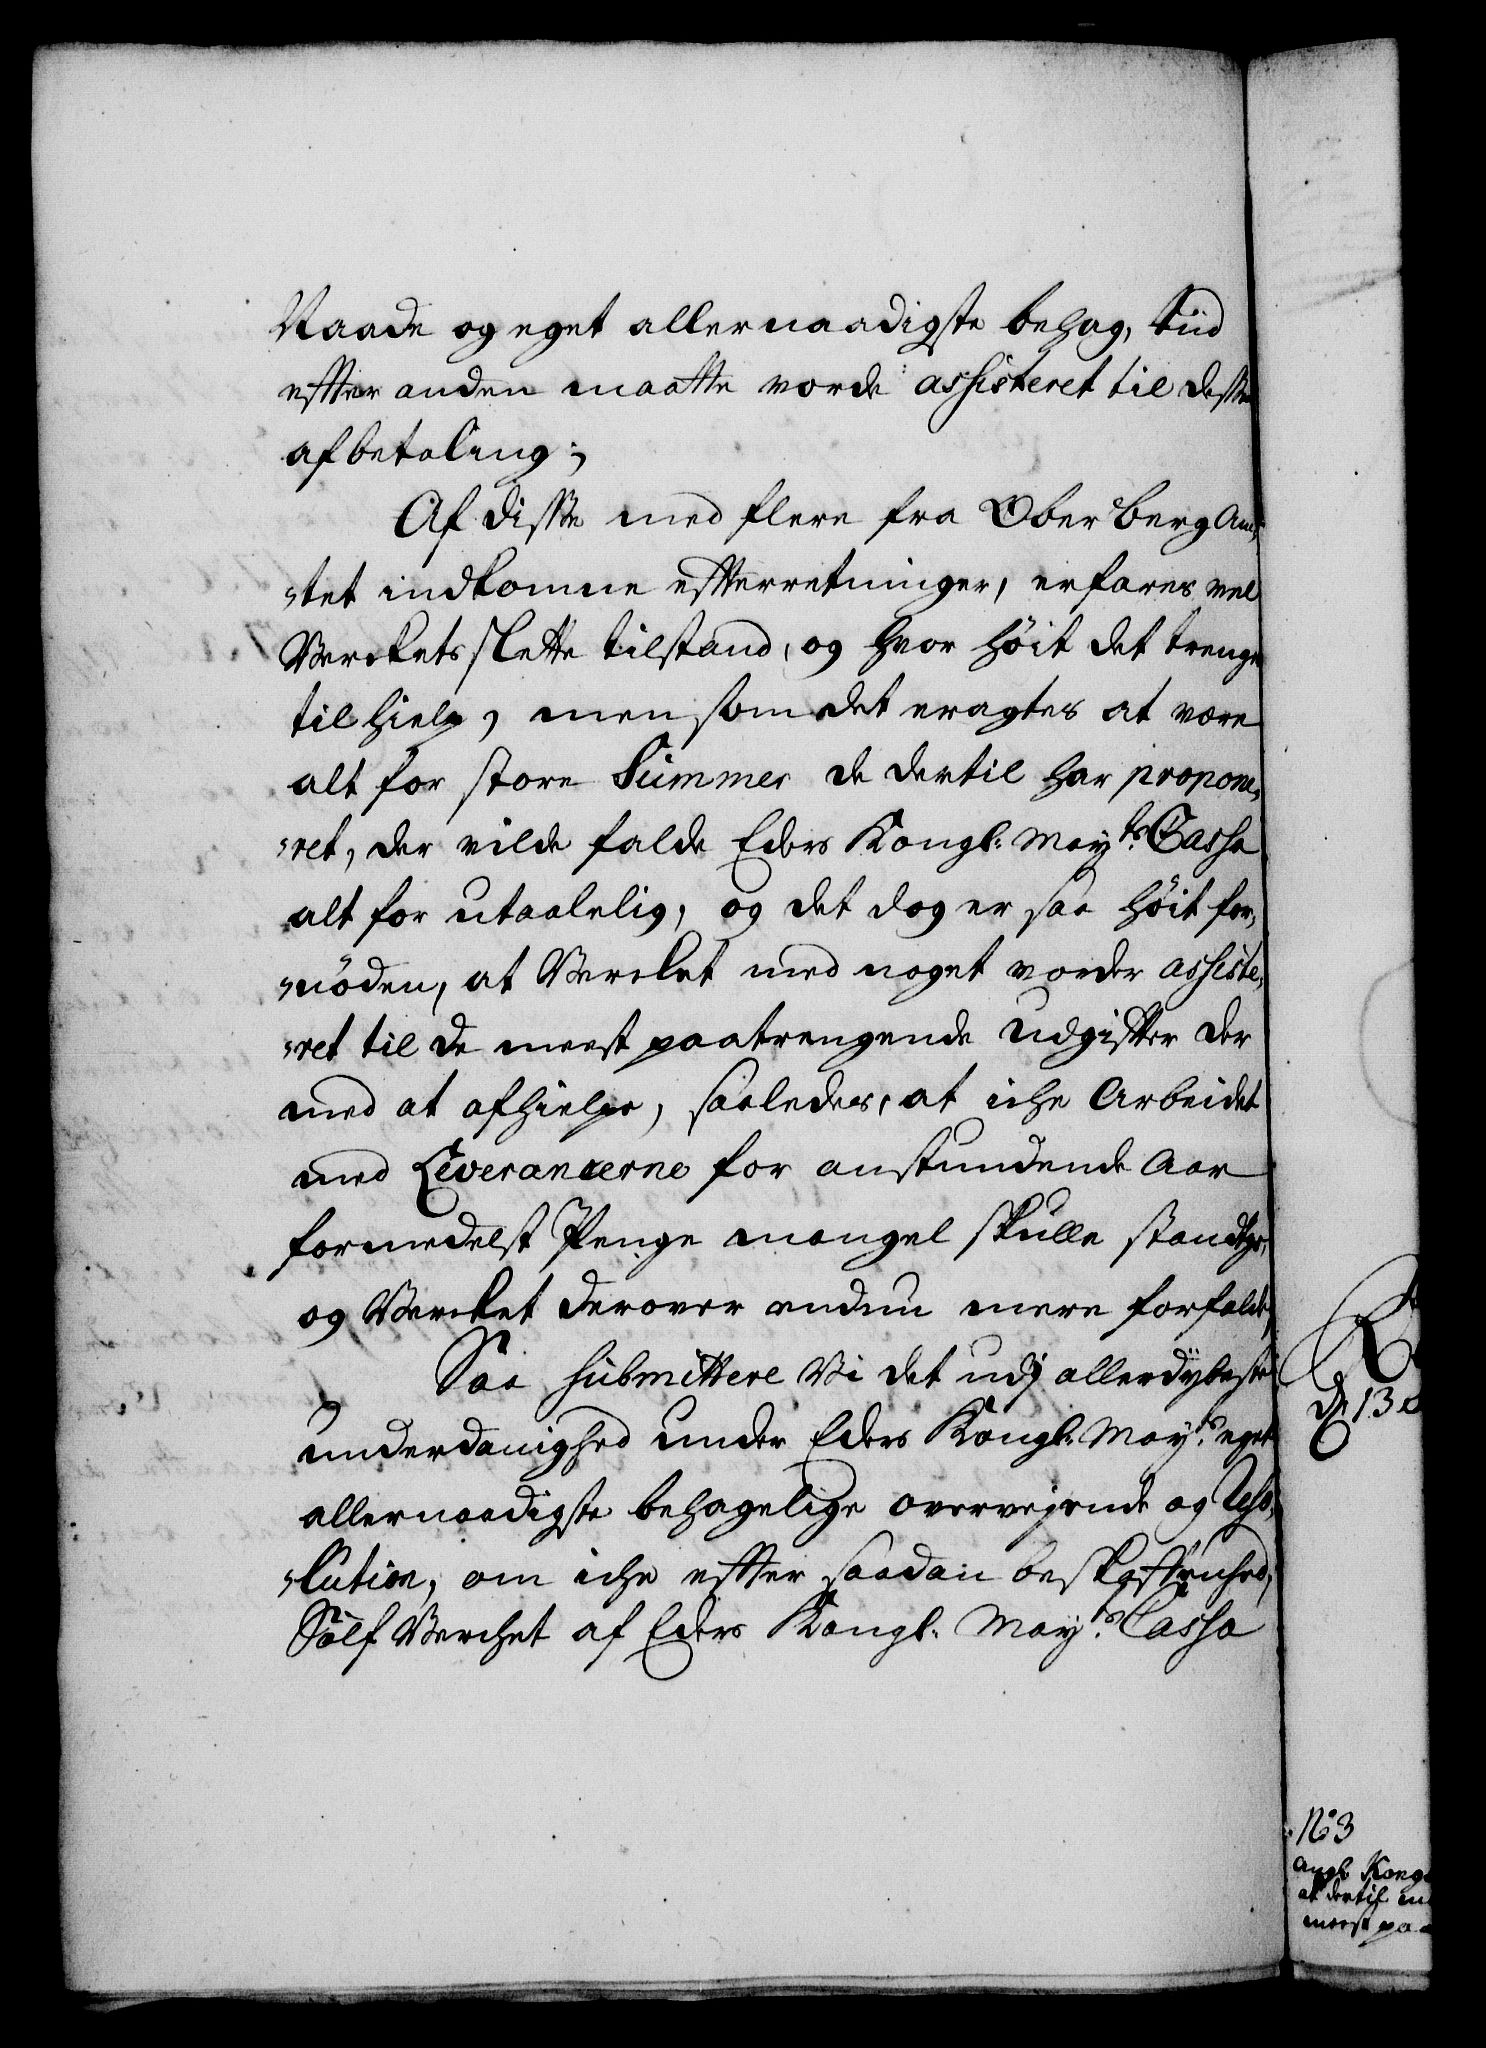 Naade og eget allernaadigste behag, tiid
effter anden maatte vorde assisteret til desse
afbetaling;
Af disse med flere fra Ober Berg Am,
,,tet indkomne effterretninger, erfares vel
Verckets slette tilstand, og hvor höit det trenge
til hielp, men som det eragtes at være
alt for store Summer de dertil har propone,,
,,ret, der vilde falde Eders Kongl: Mayts Cassa
alt for utaalelig, og det dog er saa höit for,,
,,nöden, at Vercket med noget vorder assiste,,
,,ret til de meest paatrengende udgiffter der
med at afhielpe, saaledes, at iche Arbeidet
med Leverancerne for anstundende Aar
formedelst Penge mangel skulle standse,
og Vercket derover endnu mere forfalde,
Saa submittere Vi det udj allerdybeste
underdanighed under Eders Kongl: Mayts eget
allernaadigste behagelige overvejende og Reso,,
,,lution, om iche effter saadan beskaffenhed,
Sölf Verchet af Eders Kongl. Mayts Cassa
d. 13
No 3
angl. Kong
at dertil
meest pa